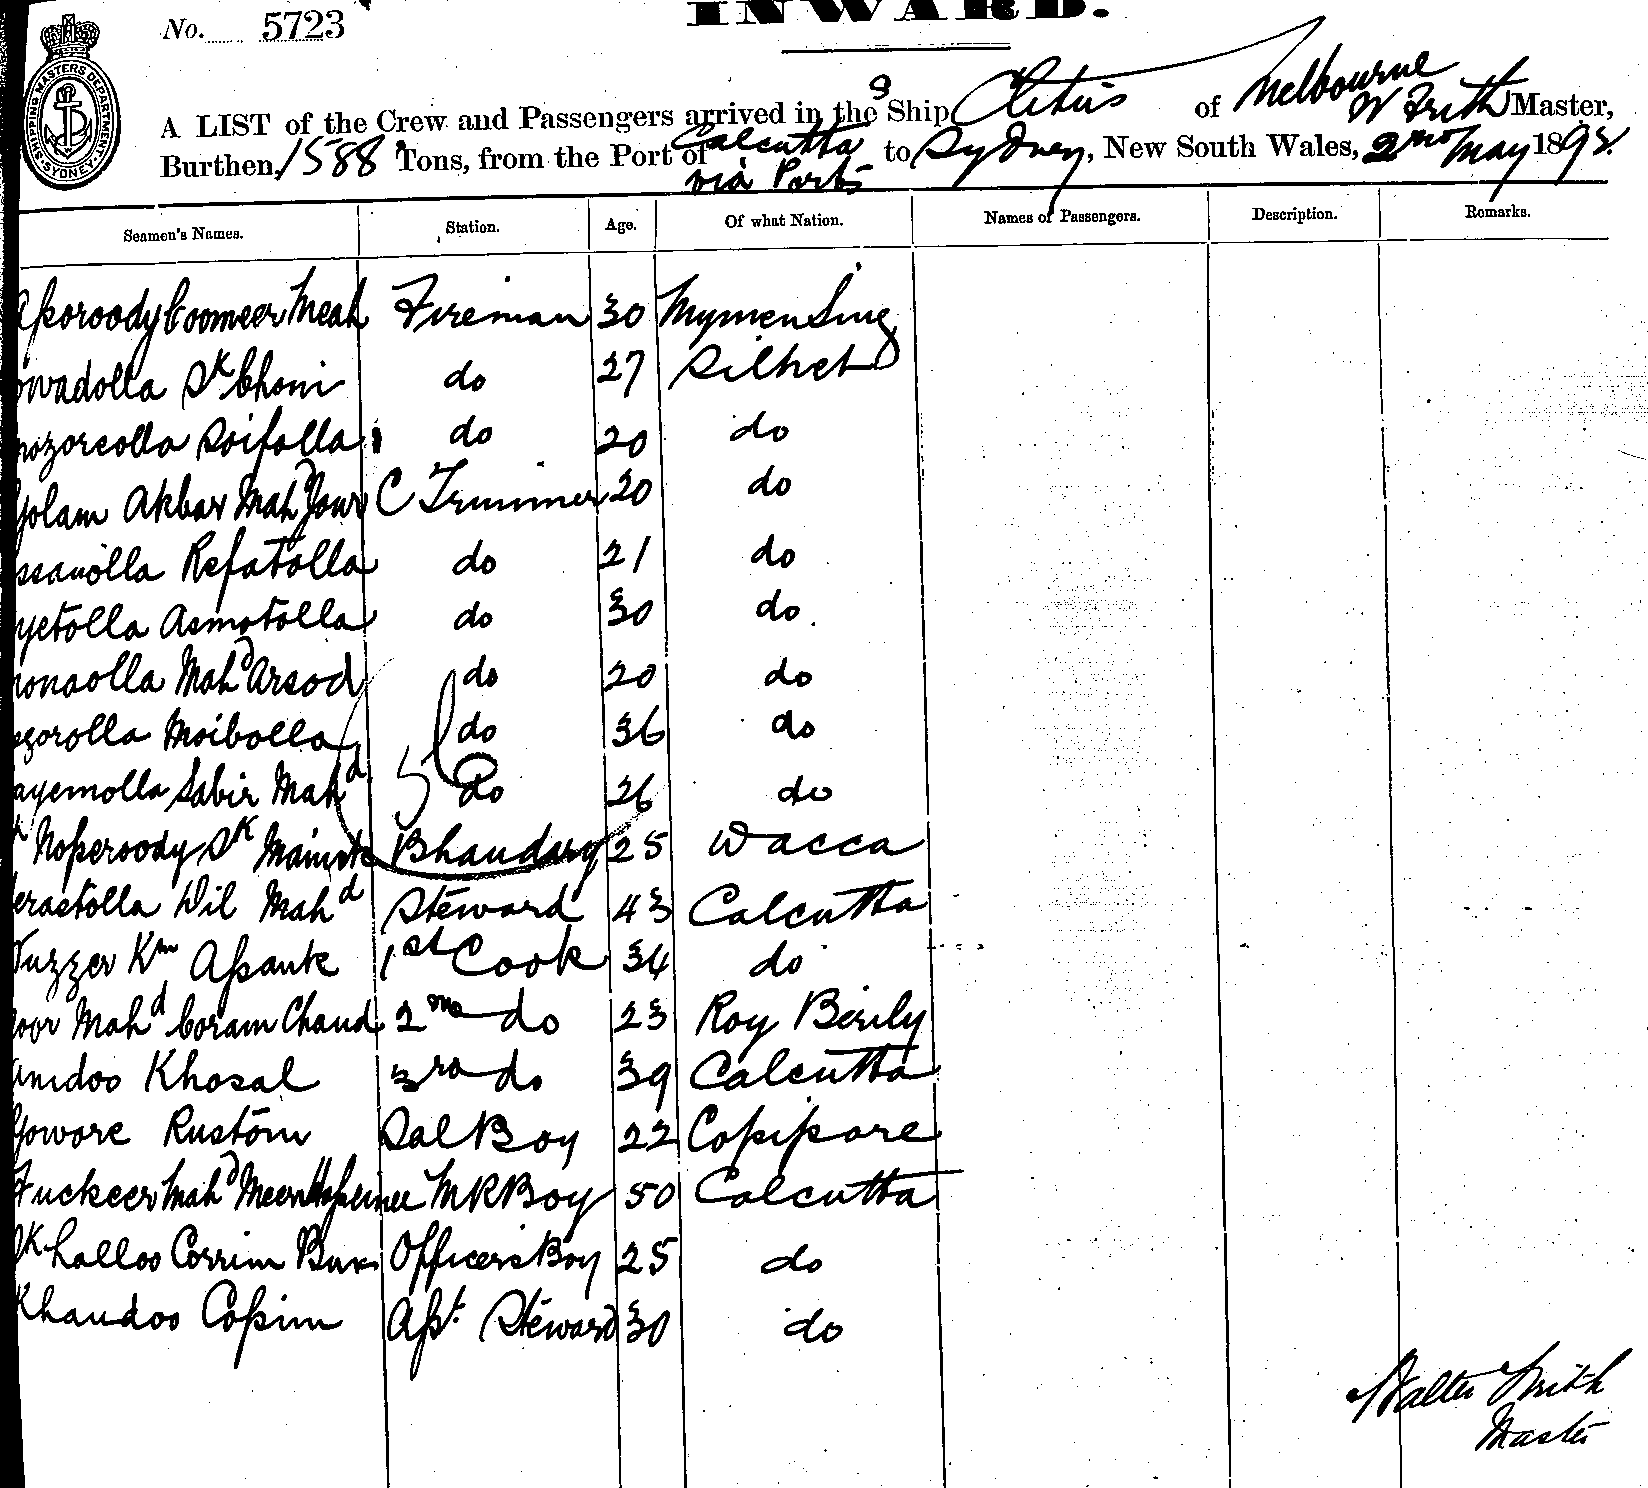 INWARD.
No. 5723
SHIPPING MASTERS DEPARTMENT SYDNEY
A LIST of the Crew and Passengers arrived in the SS Ship Clitus of Melbourne W Frith Master,
Burthen, 1588 Tons, from the Port of Calcutta via Ports to Sydney, New South Wales, 2nd May 189
Seamen's Names. Station. Age. Of what Nation. Names of Passengers. Description. Remarks.
Coomeer Meah Fireman 30 Mymensing
Sk Choni do 27 Silhet
Soifolla do 20 do
Golam Akbar Mahd C Trimmer 20 do
Refatolla do 21 do
yetolla Asmotolla do 30 do
Mahd Arsod do 20 do
gorolla Moibolla do 36 do
ayemolla Sabir Mahd do 26 do
Noperoody Sk Bhandary 25 Dacca
erastolla Dil Mahd Steward 43 Calcutta
Km 1st Cook 34 do
oor Mahd Coram Chand 2nd do 23 Roy Berily
Khosal 3rd do 39 Calcutta
Gowore Rustom Sal Boy 22
Fuckeer Mahd Meer MR Boy 50 Calcutta
Lalloo Corrim Bux Officers Boy 25 do
Khandoo Cossim Asst. Steward 30 do
Walter Frith
Master